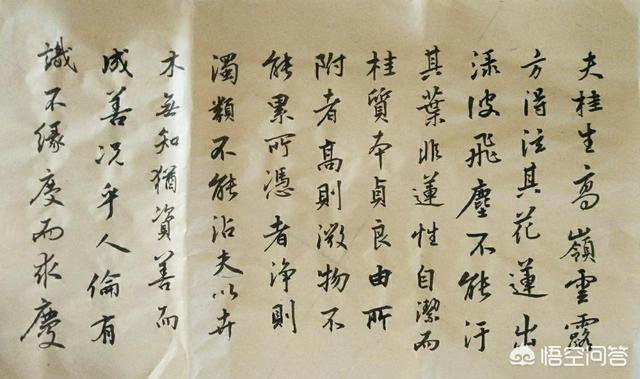 夫桂生高嶺雲露
方得泫其花蓮出
淥波飛塵不能汙
其葉非蓮性自潔而
桂質本貞良由所
附者高則微物不
能累所憑者淨則
濁類不能沾夫以卉
木無知猶資善而
成善況乎人倫有
識不緣慶而求慶
悟空问答